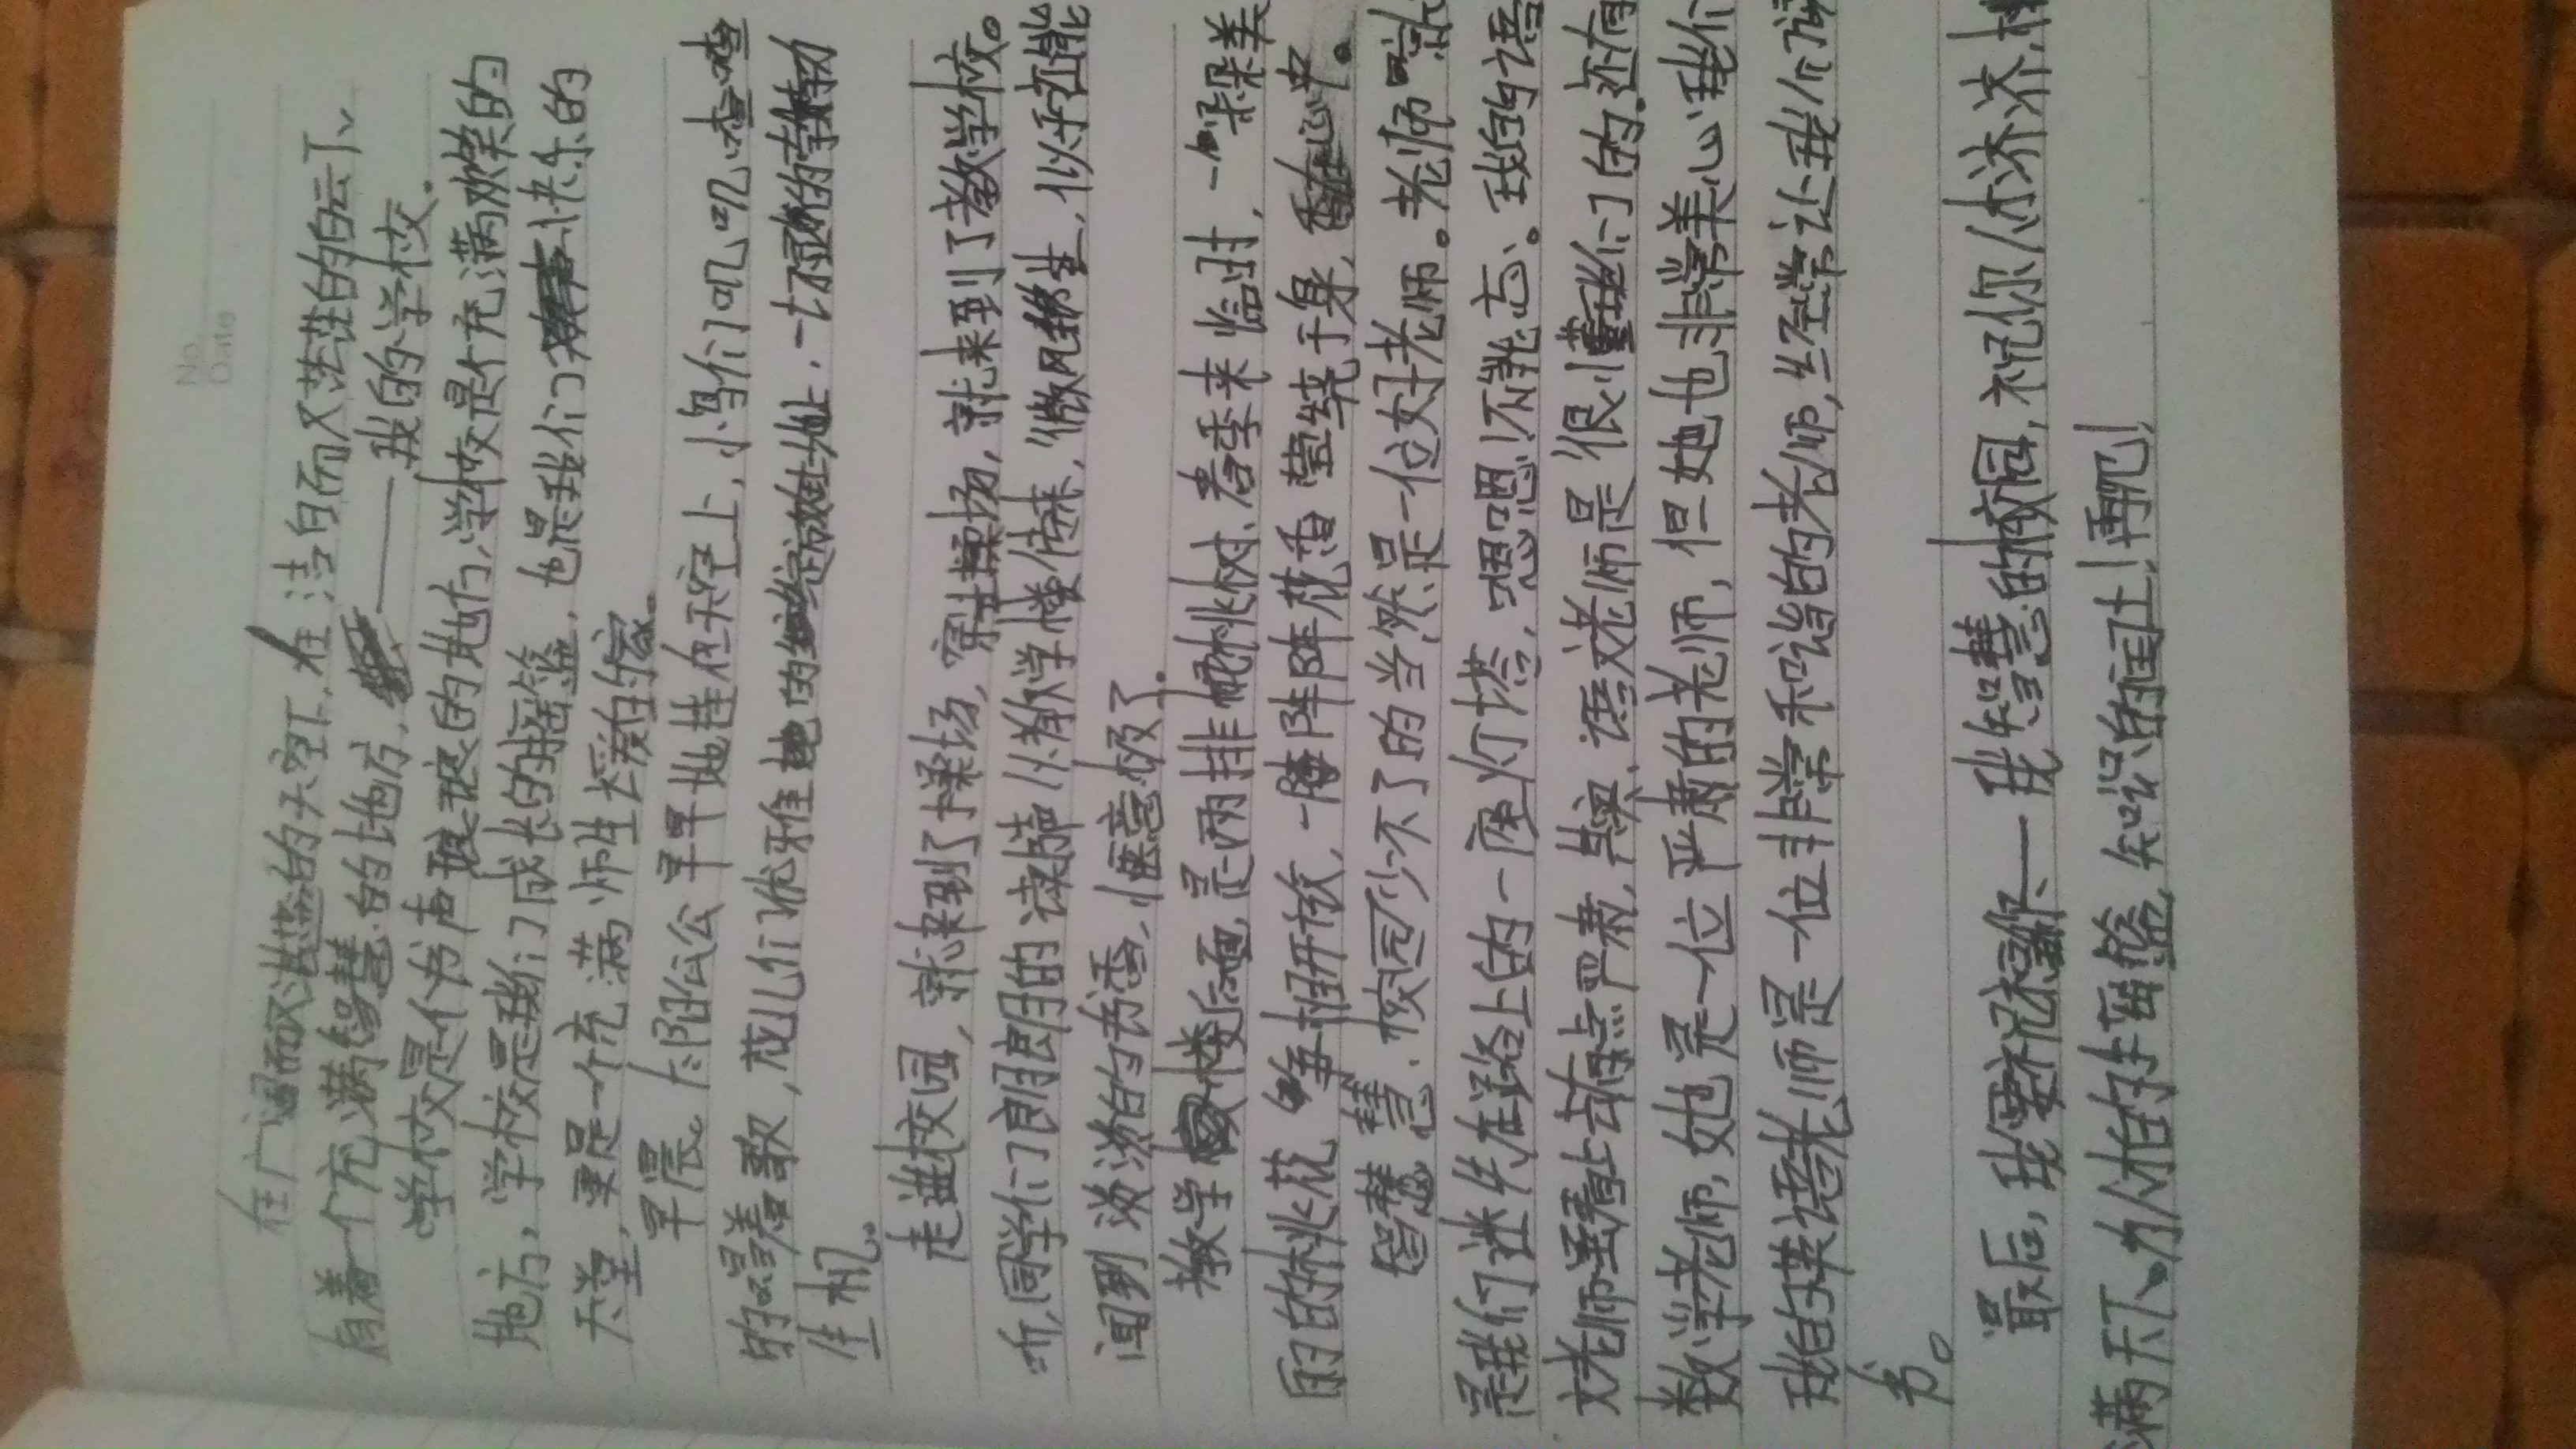 No.
Date
在广阔而又湛蓝的天空下,在洁白而又茫茫的白云下、
有着一个充满智慧的地方,——我的学校.
学校是个书声琅琅的地方,学校是个充满欢笑的
地方,学校是我们成长的摇篮,也是我们快乐的
天堂,更是一个充满师生长爱的家。
早晨。太阳公公早早地挂在天空上,小鸟们叽叽喳喳
的唱着歌,花儿们
生机。
走进校园,就来到了操场,穿过操场,就来到了教学校。
听,同学们良朗朗的读书声从教学楼传来,“微风拂过,似乎还能
闻到淡淡的书香,惬意极了.
教学楼后面,是两排桃树、春季来临时,一朵朵美
丽的桃花竞相开放,一阵阵花香萦绕于身,
智慧、校园少不了的当然是一位好老师。老师
是我们迷失在路上的一座灯塔,恩恩不能忘、。我的语
文老师看上去有点严肃,其实、语文老师是很懂我们的.还有
数学老师,她也是一位严肃的老师,但她也非常关心我们
我的英语老师是一位非常和谐的老师,经常让我们读
书。
最后,我要祝福你——我智慧的校园,祝记你人才济济,桃
满天下、为人才的摇篮,知识的